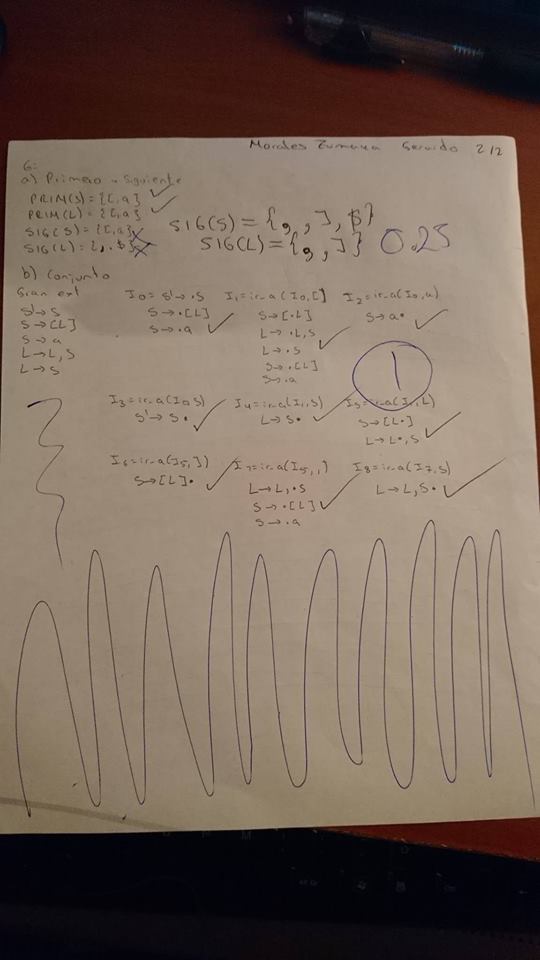 Morales Zumaya Gerardo 2/2
6:
a) Primero y Siguiente
PRIM(S) = {[, a}
PRIM(L) = {[, a}
SIG(S) = {[, a}
SIG(L) = {, $}
SIG(S) = {, , ], $}
SIG(L) = {, , ]}
0.25
b) Conjunto
Gram ext
S'→S
S→[L]
S→a
L→L,S
L→S
I0 = S'→·S
S→·[L]
S→·a
I1=ir_a(I0,[)
S→[·L]
L→·L,S
L→·S
S→·[L]
S→·a
I2=ir_a(I0,a)
S→a·
1
I3=ir_a(I0,S)
S'→S·
I4=ir_a(I1,S)
L→S·
I5=ir_a(I1,L)
S→[L·]
L→L·,S
I6=ir_a(I5,])
S→[L]·
I7=ir_a(I5,,)
L→L,·S
S→·[L]
S→·a
I8=ir_a(I7,S)
L→L,S·